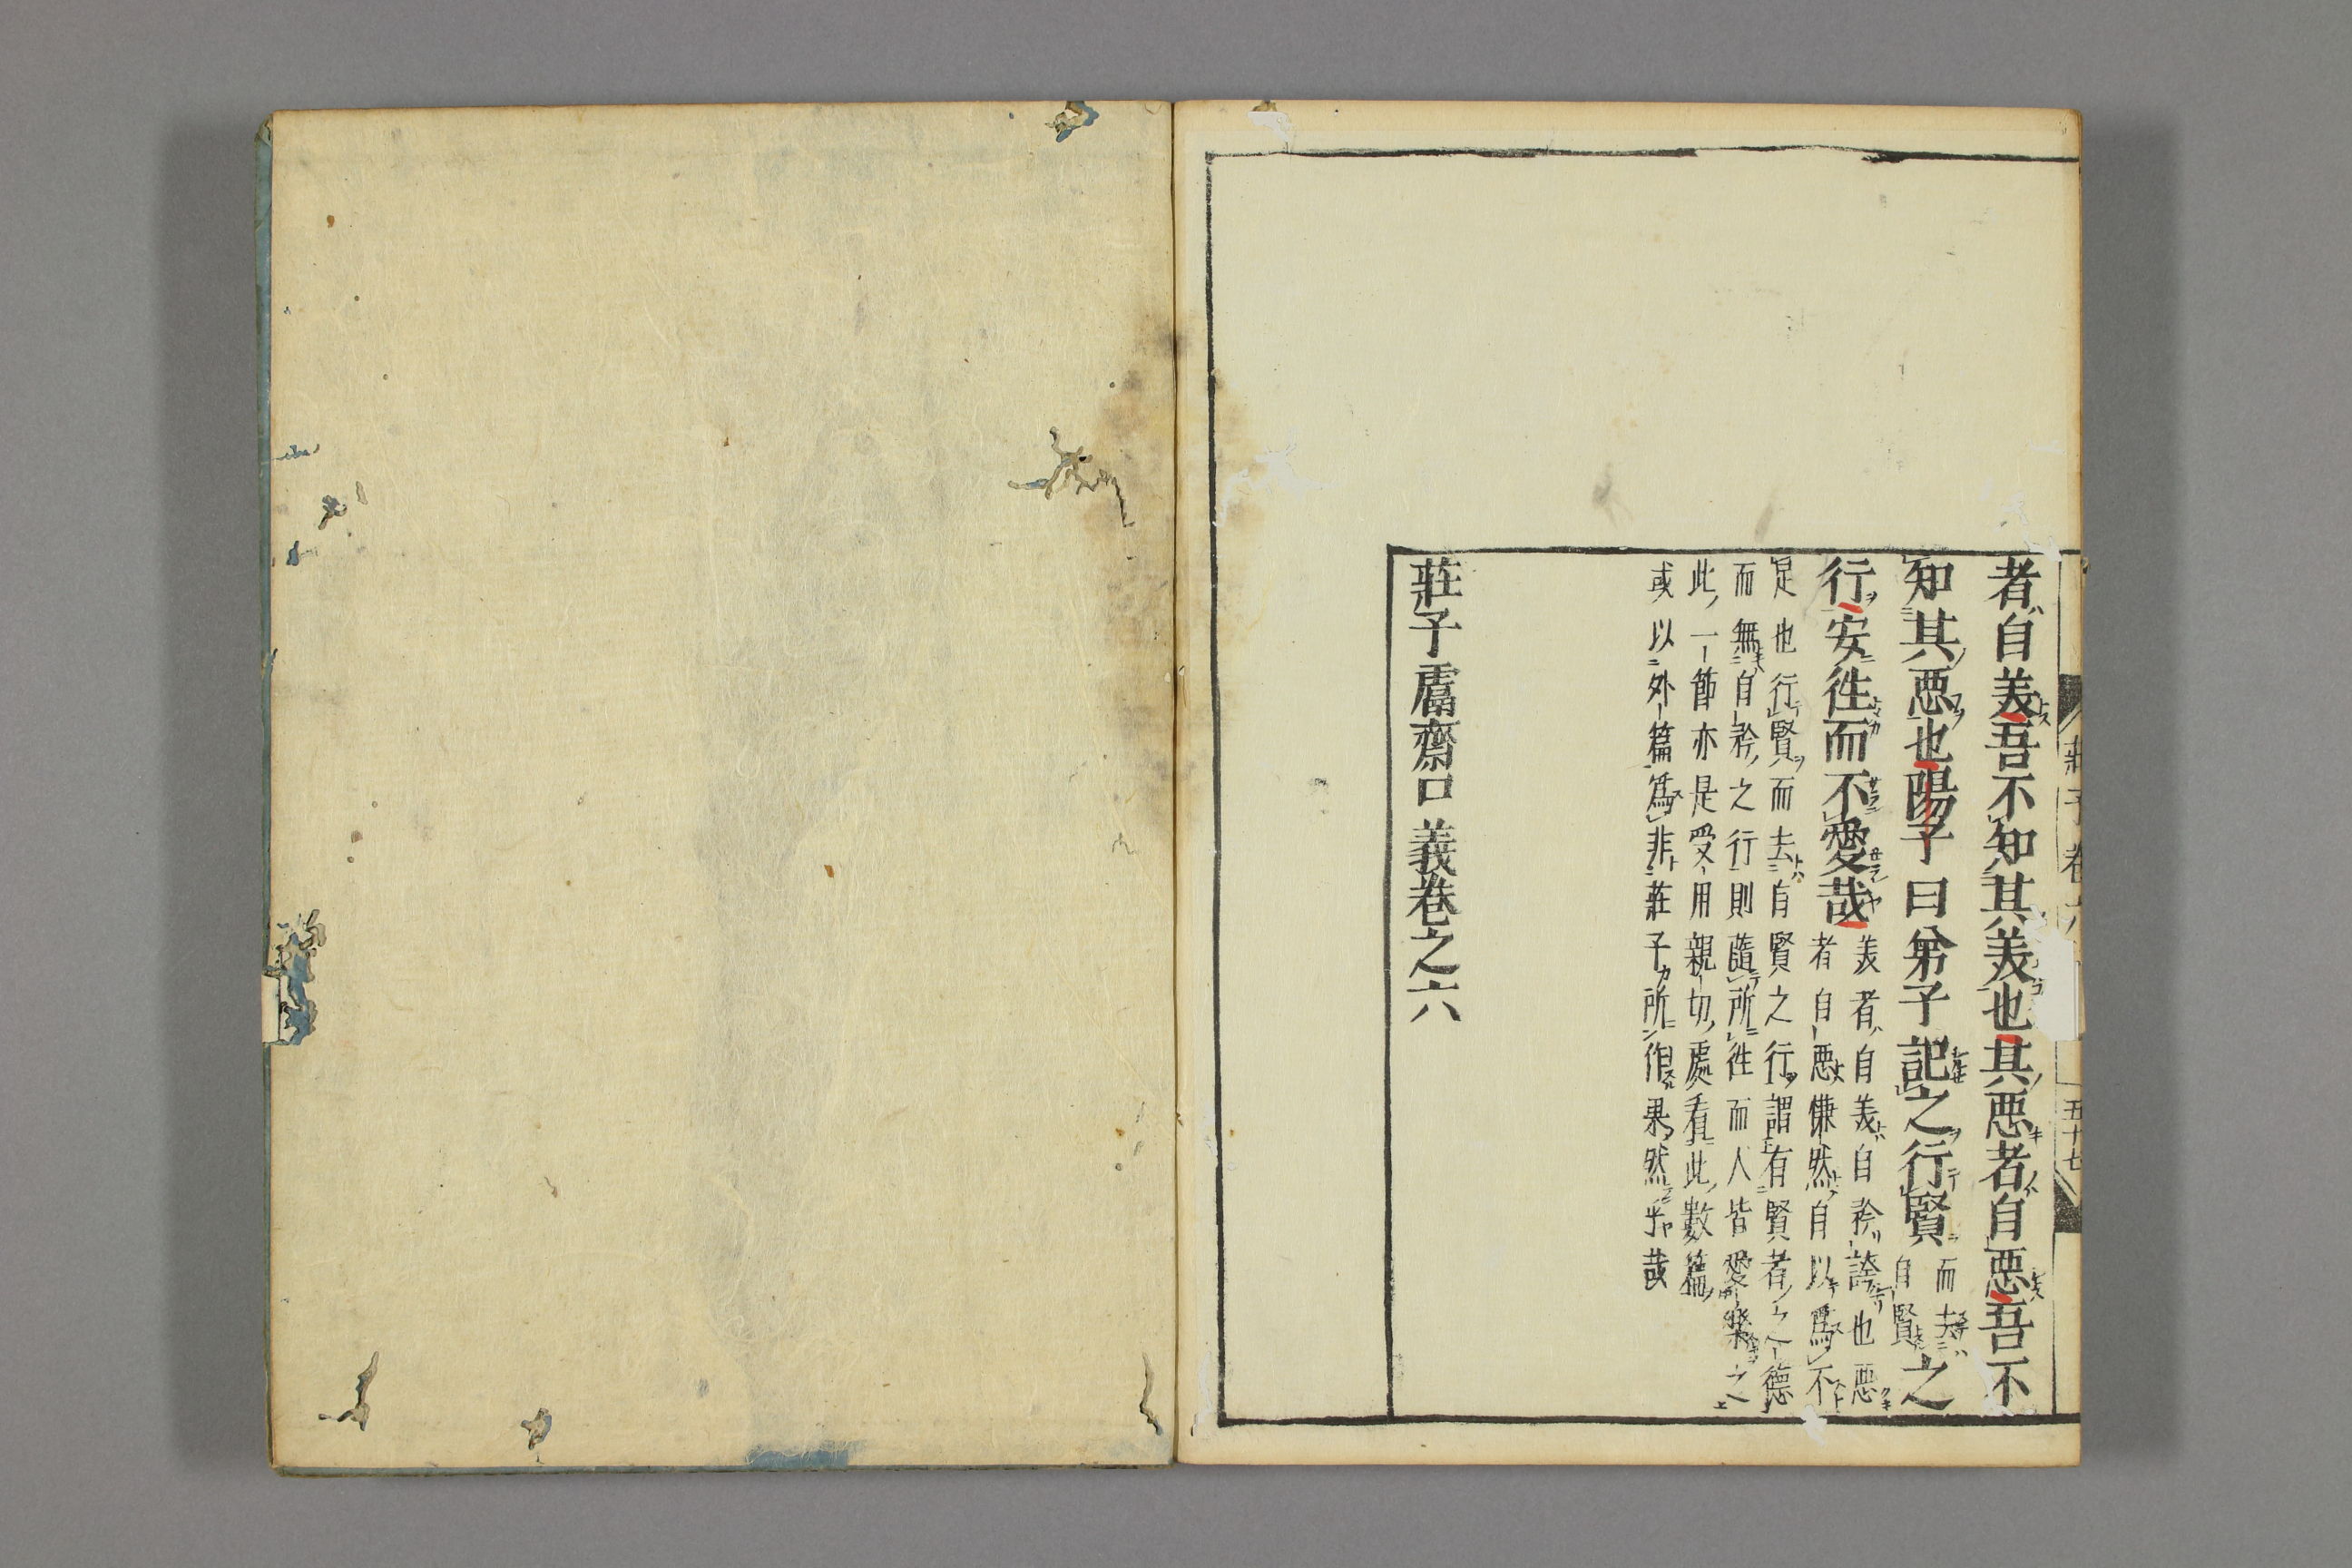 者自美吾不知其美也其惡者自惡吾不
知其惡也陽子曰弟子記之行賢而去自賢之
行安徃而不愛哉
美者自美自矜誇也惡
者自惡慊然自以爲不
足也行賢而去自賢之行謂有賢者之德
而無自矜之行則隨所徃而人皆愛樂之
此一節亦是受用親切處看此數篇
或以外篇爲非莊子所作果然乎哉
莊子鬳齋口義卷之六
莊子卷六
五十七